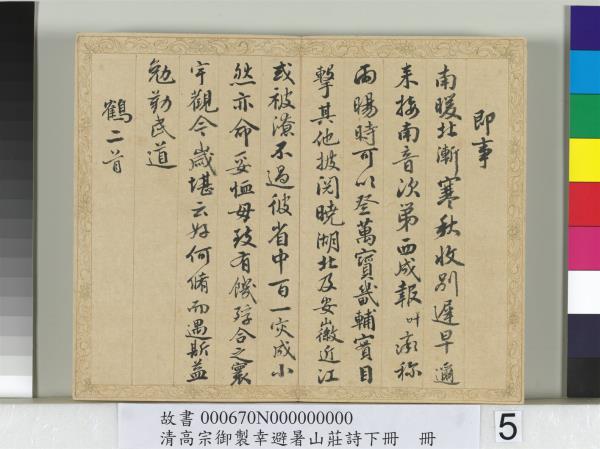 即事
南暖北漸寒秋收別遲早邇
來接南音次第西成報叶澍稱
雨暘時可以登萬寶畿輔實目
擊其他披閱曉湖北及安徽近江
或被潦不過彼省中百一灾成小
然亦命妥恤毋致有饑殍合之寰
宇觀今歲堪云好何脩而遇斯益
勉勤民道
鶴二首
故書 000670N000000000
清高宗御製幸避暑山莊詩下冊 冊
5